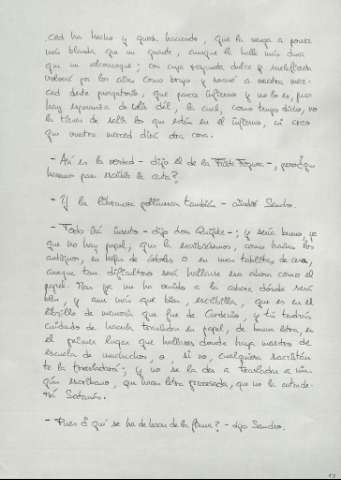 ced ha hecho y queda haciendo, que la venga a poner
más blanda que un guante, aunque la halle más dura
que un alcornoque; con cuya respuesta dulce y melificada
volveré por los aires como brujo y sacaré a vuestra mer-
ced deste purgatorio, que parece infierno y no lo es, pues
hay esperanza de salir dél, la cual, como tengo dicho, no
la tienen de salir los que están en el infierno, ni creo
que vuestra merced dirá otra cosa.
- Así es la verdad - dijo el de la Triste Figura -, pero ¿qué
haremos para escribir la carta?
- Y la libranza pollinesca también - añadió Sancho.
- Todo irá inserto - dijo don Quijote -; y sería bueno, ya
que no hay papel, que la escribiésemos, como hacían los
antiguos, en hojas de árboles o en unas tablitas de cera,
aunque tan dificultoso será hallarse eso ahora como el
papel. Mas ya me ha venido a la            dónde será
bien, y aun más que bien, escribilla, que es en el
librillo de memoria que fue de Cardenio, y tú tendrás
cuidado de hacerla trasladar en papel, de buena letra, en
el primer lugar que hallares donde haya maestro de
escuela de muchachos, o, si no, cualquiera sacristán
te la trasladará; y no se la des a trasladar a nin-
gún escribano, que hacen letra procesada, que no la entende-
rá Satanás.
- ¿Pues qué se ha de hacer de la firma? - dijo Sancho.